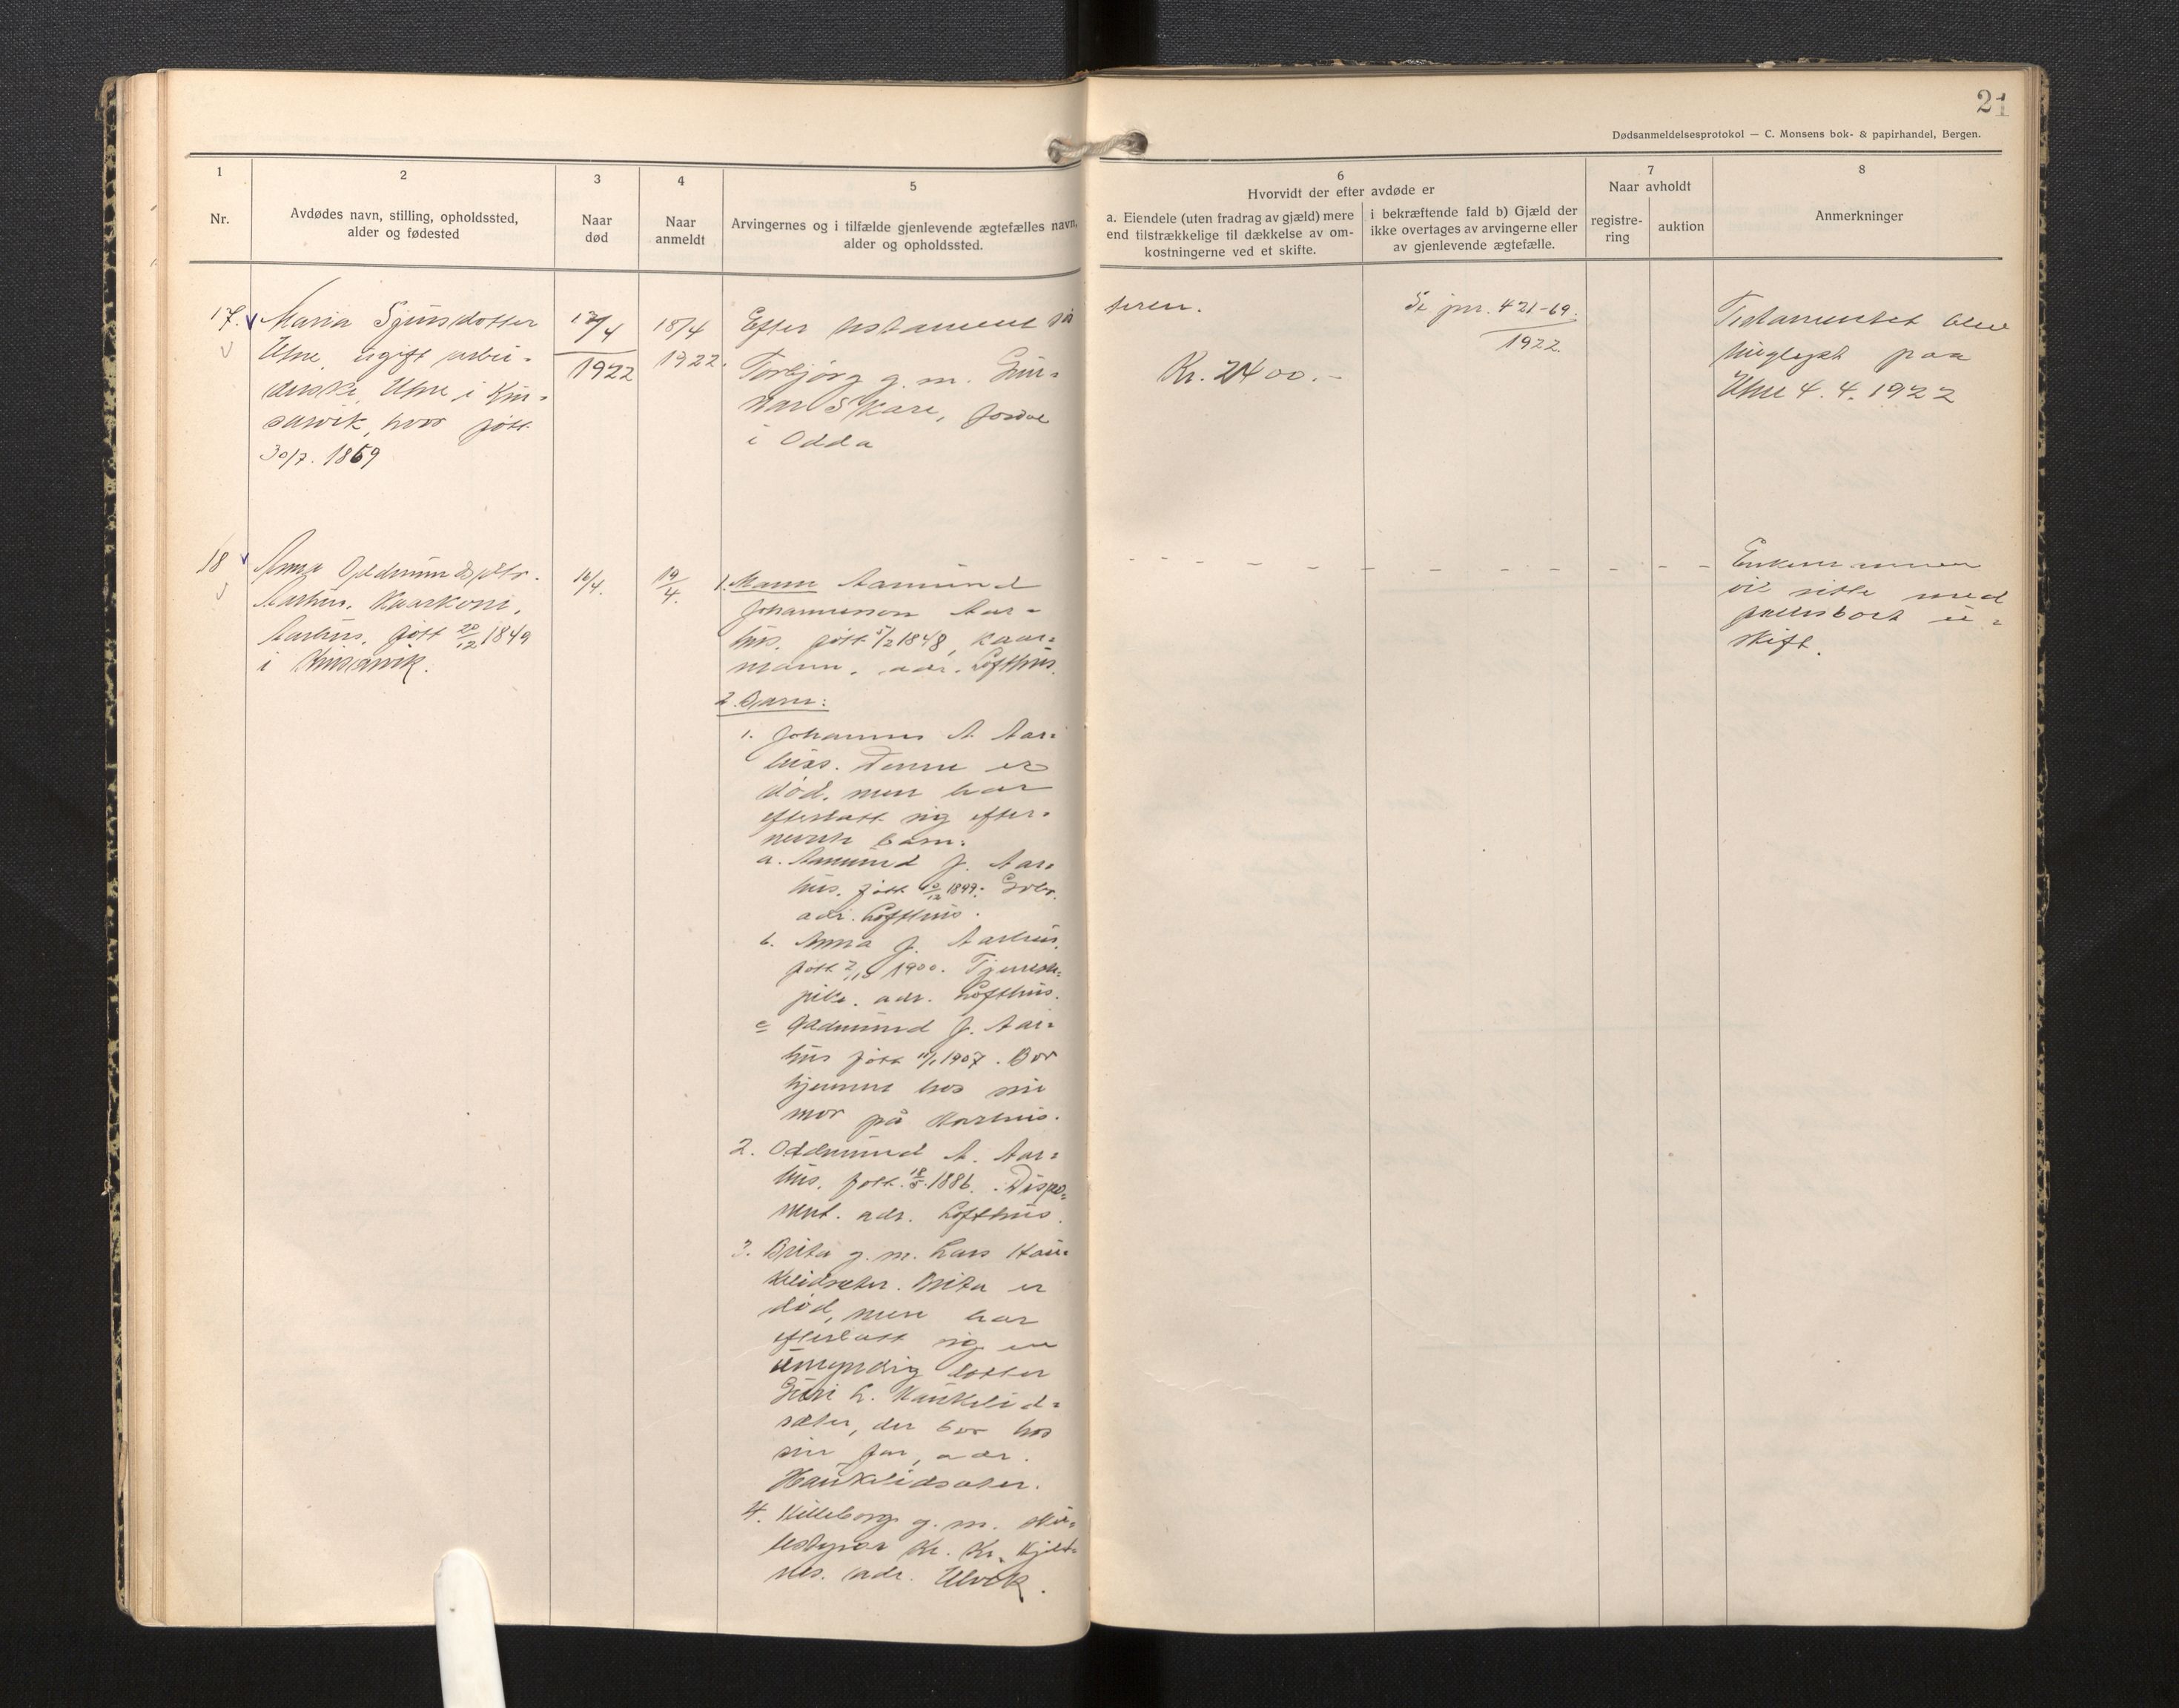 21
Dødsanmeldelsesprotokol — C. Monsens bok- & papirhandel, Bergen.
1
Nr.
2
Avdødes navn, stilling, opholdssted,
alder og fødested
3
Naar
død
4
Naar
anmeldt
5
Arvingernes og i tilfælde gjenlevende ægtefælles navn,
alder og opholdssted.
6
Hvorvidt der efter avdøde er
a. Eiendele (uten fradrag av gjæld) mere
end tilstrækkelige til dækkelse av om-
kostningerne ved et skifte.
i bekræftende fald b) Gjæld der
ikke overtages av arvingerne eller
av gjenlevende ægtefælle.
7
Naar avholdt
registre-
ring
auktion
8
Anmerkninger
17.
Maria Sjursdotter
Utne, ugift
Utne i Kin-
sarvik, hvor født
30/7. 1869
/4
1922
18/4
1922.
Efter testament
Torbjørg g. m. Gun-
nar Skare, Jordal
i Odda
Kr. 2400.-
Se jnr. 421-69.
1922.
Testamentet blev
tinglyst paa
Utne 4. 4. 1922
18
Anna Oddmundsdtr.
Aarhus. Kaarkone,
Aarhus, født 20/12 1849
i Kinsarvik.
16/4.
19/4.
1. Mann Aamund
Johannesson Aar-
hus, født 5/2 1848, kaar-
mann. adr. Lofthus.
2. Barn:
1. Johannes A. Aar-
hus. Denne er
død, men har
efterlatt sig efter-
nevnte barn:
a. Aamund J. Aar-
hus. født /12 1899. Gbr.
adr. Lofthus.
b. Anna J. Aarhus.
født 2/10 1900. Tjeneste-
pike. adr. Lofthus.
c Oddmund J. Aar-
hus født 11/1 1907. Bor
hjemme hos sin
mor på Aarhus.
2. Oddmund A. Aar-
hus. født. 18/5. 1886. Dispo-
nent. adr. Lofthus.
3. Brita g. m. Lars Hau-
kelidseter. Brita er
død, men har
efterlatt sig en
umyndig dotter
Guri L. Haukelid-
sæter, der bor hos
sin far, adr.
Haukelidsæter.
4. Killeborg g. m. sko-
lestyrer Kr. Kr. Kjelt-
nes. adr. Ulvik.
- - - - - - - - - - - - - - -
Enkemannen
vil sitte med
fællesboet u-
skift.